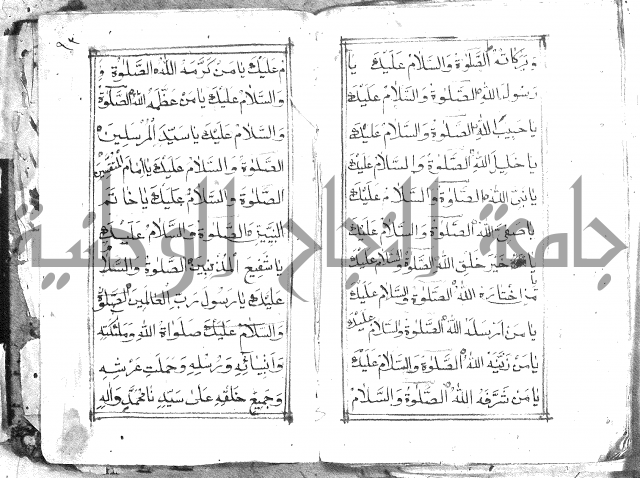 وبركاته الصلوة والسلام عليك يا
رسول الله الصلوة والسلام عليك
يا حبيب الله الصلوة والسلام عليك
يا خليل الله الصلوة والسلام عليك
يا نبي الله الصلوة والسلام عليك
يا صفي الله الصلوة والسلام عليك
يا خير خلق الله الصلوة والسلام عليك
يا من اختاره الله الصلوة والسلام عليك
يا من ارسله الله الصلوة والسلام عليك
يا من زينه الله الصلوة والسلام عليك
يا من شرفه الله الصلوة والسلام
٩٣
عليك يا من كرمه الله الصلوة و
والسلام عليك يا من عظمه الله الصلوة
والسلام عليك يا سيد المرسلين
الصلوة والسلام عليك يا امام المتقين
الصلوة والسلام عليك يا خاتم
النبيين الصلوة والسلام عليك
يا شفيع المذنبين الصلوة والسلام
عليك يا رسول رب العالمين الصلوة
والسلام عليك صلواة الله وملئكته
وانبيائه ورسله وحملت عرشه
وجميع خلقه على سيدنا محمد واله
جامعة النجاح الوطنية